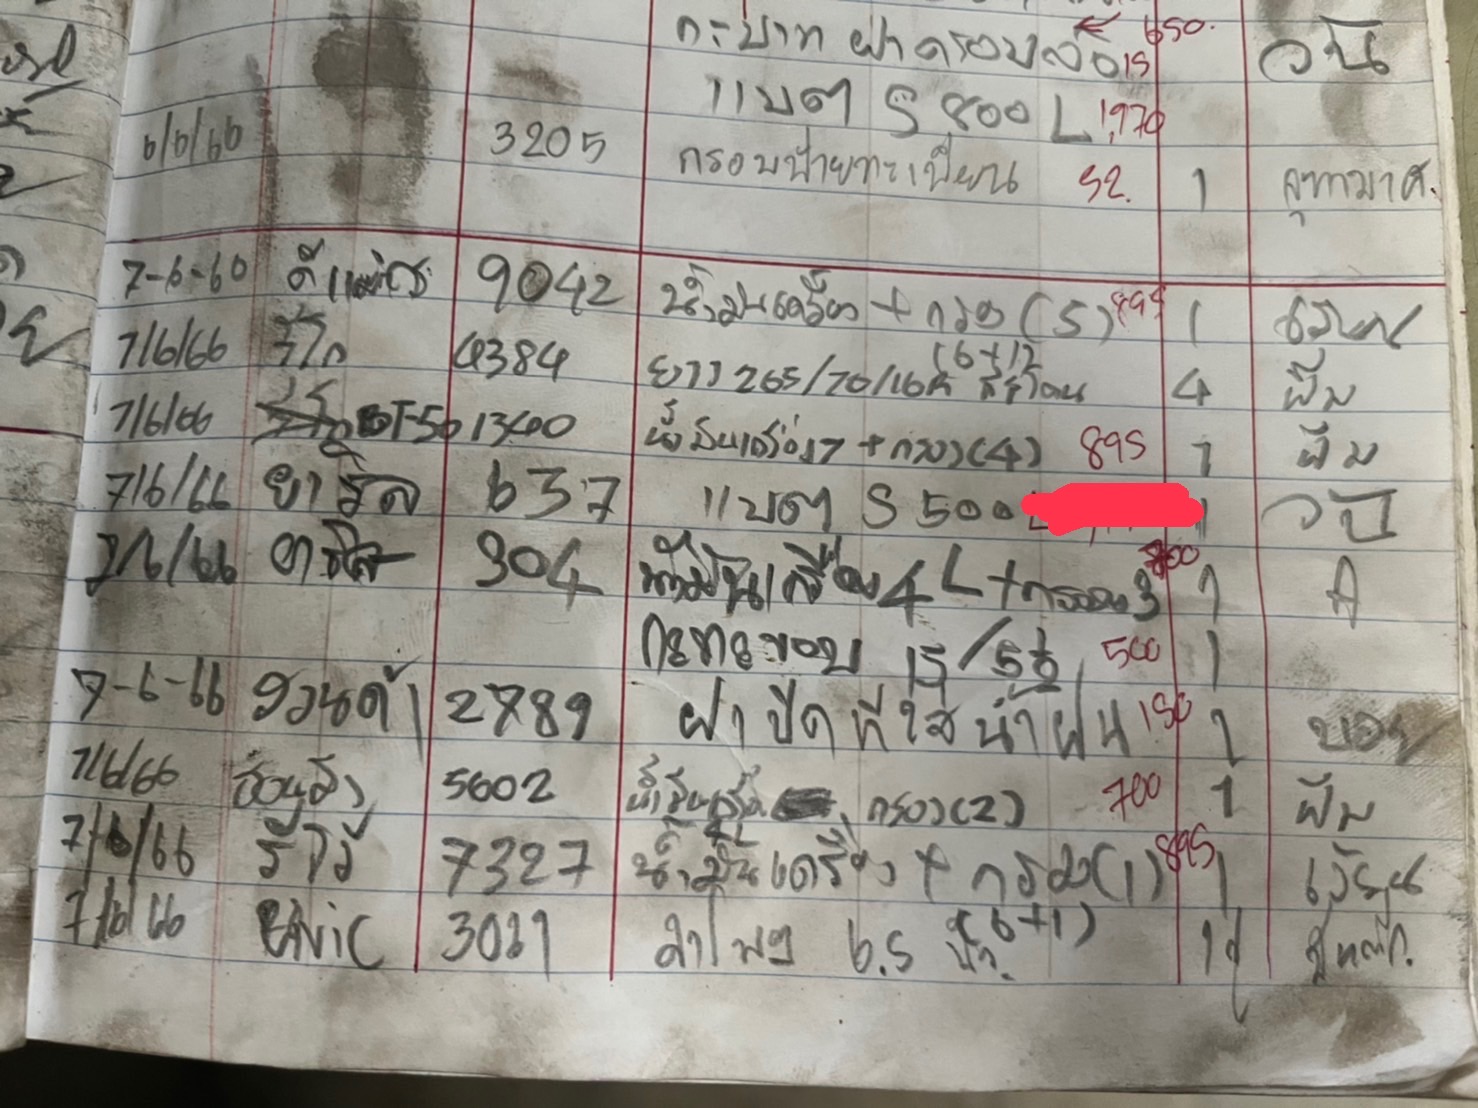 กะบาท ฝาครอบล้อ 15 650.
วปี
แบต S 800 L 1,970
6/6/66 3205 กรอบป้ายทะเบียน 52. 1 จุฑามาศ.
7-6-66 ดีแม็กซ 9042 น้ำมันเครื่อง + กรอง (5) 895 1
7/6/66 วีโก 4384 ยาง 265/70/16 (6+1) 4 ฟิม
7/6/66 BT-50 1340 น้ำมันเครื่อง 7 + กรอง (4) 895 1 ฟิม
7/6/66 ยาริส 637 แบต S 500 1 วปี
7/6/66 304 น้ำมันเครื่อง 4 L + กรอง 3 800 1 A
กะทะขอบ 15/5 รู 500 1
7-6-66 ฮอนด้า 2789 ฝาปิดที่ใส่น้ำฝน 150 1 บอย
7/6/66 5602 น้ำมันเครื่อง กรอง (2) 700 1 ฟิม
4L
7/6/66 รีโว้ 7327 น้ำมันเครื่อง + กรอง (1) 895 1
7/6/66 CIVIC 3011 ลำโพง 6.5 (6+1) 1